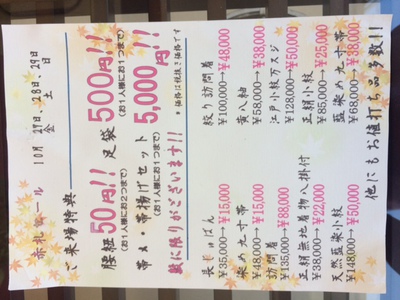 赤札セール 10月27、28、29日
金 土 日
ご来場特典
腰紐50円!! 足袋500円!!
(お1人様にお2つまで) (お1人様にお1つまで)
帯〆・帯揚げセット5,000円!!
(お1人様にお1つまで)
数に限りがございます!! *価格は税抜き価格です
長じゅばん
¥35,000→¥15,000
染め九寸帯
¥48,000→¥15,000
訪問着
¥135,000→¥88,000
正絹無地着物八掛付
¥38,000→¥22,000
天然藍染小紋
¥148,000→¥50,000
絞り訪問着
¥100,000→¥48,000
黄八紬
¥58,000→¥38,000
江戸小紋万スジ
¥128,000→¥50,000
正絹小紋
¥85,000→¥25,000
藍染め九寸帯
¥68,000→¥38,000
他にもお値打ち品多数!!